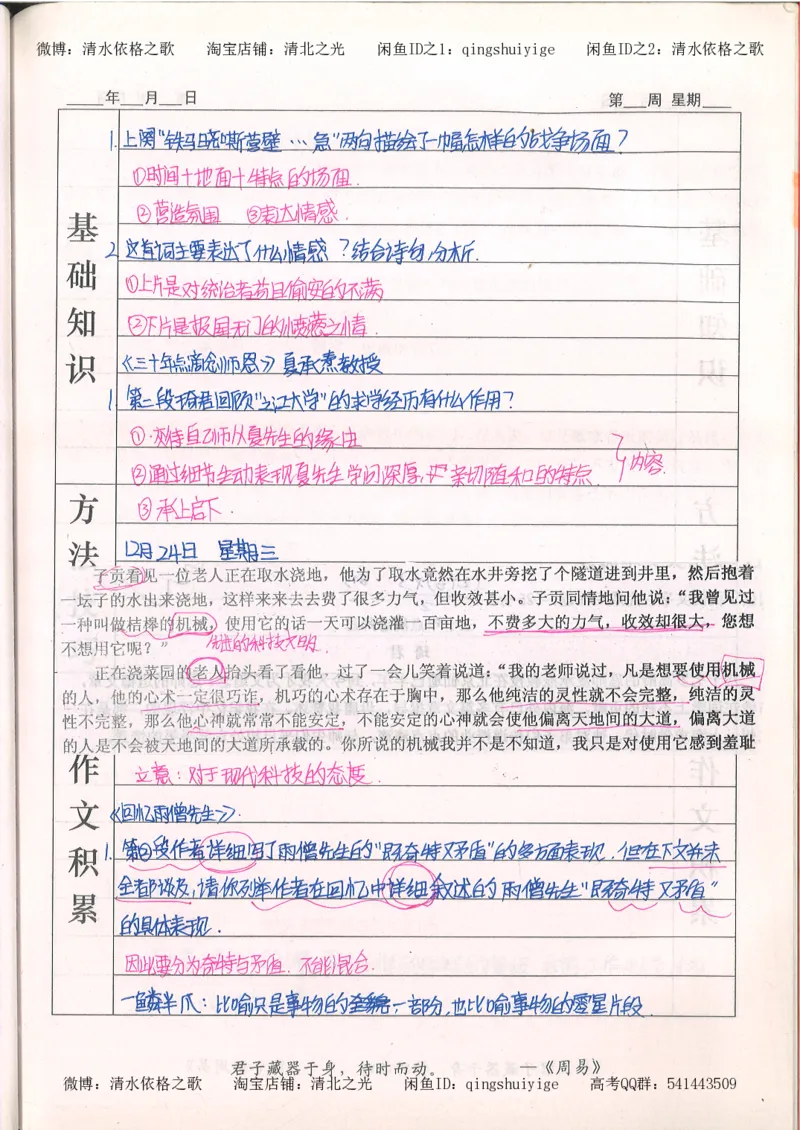 微博：清水依格之歌 淘宝店铺：清北之光 闲鱼ID之1：qingshuiyige 闲鱼ID之2：清水依格之歌
年 月 日 第 周 星期
1. 上阕"铁马晓嘶营壁…急"两句描绘了一幅怎样的战争场面？
①时间+地面+特点的场面.
②营造氛围 ③表达情感.
2. 这首词主要表达了什么情感？结合诗句分析.
①上片是对统治者苟且偷安的不满
②下片是报国无门的悲慨之情.
基础知识
《三十年点滴念师恩》 夏承焘教授
1. 第二段琦君回顾"之江大学"的求学经历有什么作用？
①交待自己师从夏先生的缘由
②通过细节生动表现夏先生学问深厚, 亲切随和的特点
内容.
③承上启下.
方法
12月24日 星期三
子贡看见一位老人正在取水浇地，他为了取水竟然在水井旁挖了个隧道进到井里，然后抱着
一坛子的水出来浇地，这样来来去去费了很多力气，但收效甚小。子贡同情地问他说：“我曾见过
一种叫做桔槔的机械，使用它的话一天可以浇灌一百亩地，不费多大的力气，收效却很大，您想
不想用它呢？”
先进的科技文明.
正在浇菜园的老人抬头看了看他，过了一会儿笑着说道：“我的老师说过，凡是想要使用机械
的人，他的心术一定很巧诈，机巧的心术存在于胸中，那么他纯洁的灵性就不会完整，纯洁的灵
性不完整，那么他心神就常常不能安定，不能安定的心神就会使他偏离天地间的大道，偏离大道
的人是不会被天地间的大道所承载的。你所说的机械我并不是不知道，我只是对使用它感到羞耻
作文积累
立意：对于现代科技的态度.
《回忆雨僧先生》.
1. 第②段作者详细写了雨僧先生的"既奇特又矛盾"的多方面表现, 但在下文并未
全部谈及, 请你列举作者在回忆中详细叙述的雨僧先生"既奇特又矛盾"
的具体表现.
因此要分为奇特与矛盾. 不能混合.
一鳞半爪：比喻只是事物的一部分, 也比喻事物的零星片段.
君子藏器于身，待时而动。 ——《周易》
微博：清水依格之歌 淘宝店铺：清北之光 闲鱼ID：qingshuiyige 高考QQ群：541443509